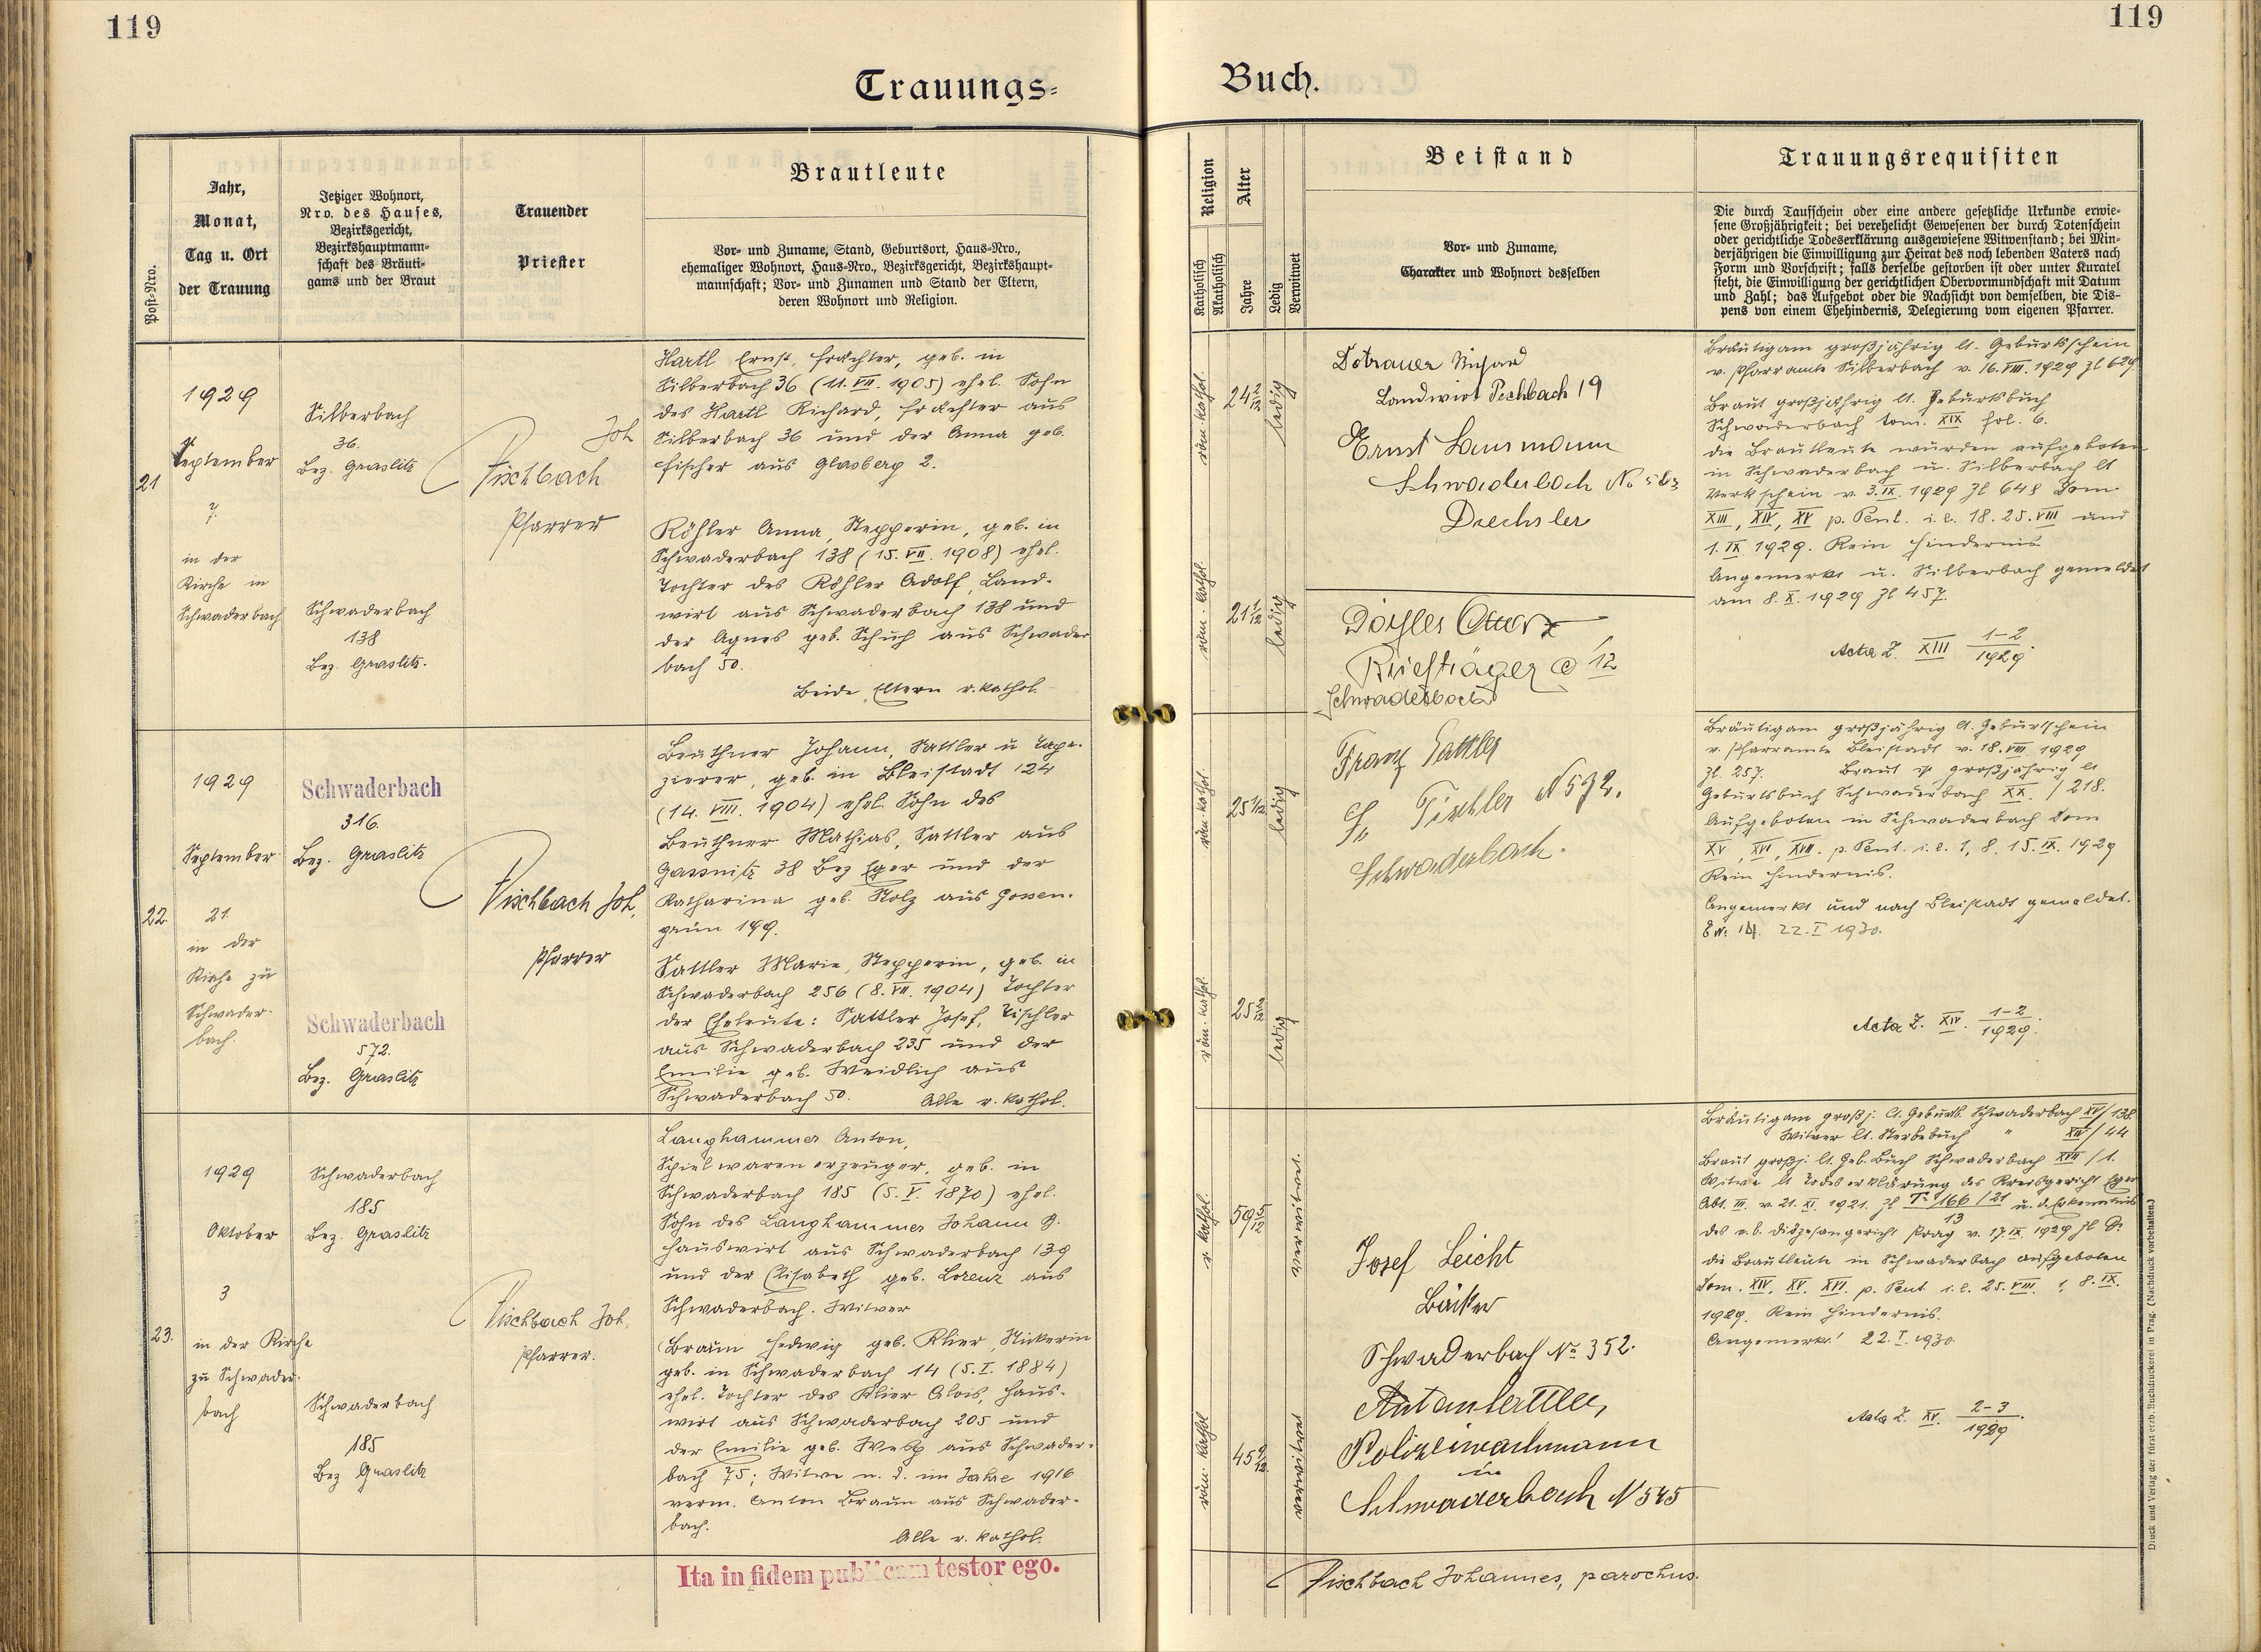 119
119
Trauungs-
Buch.
Post-Nro.
Jahr,
Monat,
Tag u. Ort
der Trauung
Jetziger Wohnort,
Nro. des Hauses,
Bezirksgericht,
Bezirkshauptmann-
schaft des Bräuti-
gams und der Braut
Trauender
Priester
Brautleute
Vor- und Zuname, Stand, Geburtsort, Haus-Nro.,
ehemaliger Wohnort, Haus-Nro., Bezirksgericht, Bezirkshaupt-
mannschaft; Vor- und Zunamen und Stand der Eltern,
deren Wohnort und Religion.
Religion
Katholisch
Akatholisch
Alter
Jahre
Ledig
Verwitwet
Beistand
Vor- und Zuname,
Charakter und Wohnort desselben
Trauungsrequisiten
Die durch Taufschein oder eine andere gesetzliche Urkunde erwie-
sene Großjährigkeit; bei verehelicht Gewesenen der durch Totenschein
oder gerichtliche Todeserklärung ausgewiesene Witwenstand; bei Min-
derjährigen die Einwilligung zur Heirat des noch lebenden Vaters nach
Form und Vorschrift; falls derselbe gestorben ist oder unter Kuratel
steht, die Einwilligung der gerichtlichen Obervormundschaft mit Datum
und Zahl; das Aufgebot oder die Nachsicht von demselben, die Dis-
pens von einem Ehehindernis, Delegierung vom eigenen Pfarrer.
21
1929
September
7.
in der
Kirche in
Schwaderbach
Silberbach
36.
Bez. Graslitz
Schwaderbach
138
Bez. Graslitz.
Joh
Pischbach
Pfarrer
Hartl Ernst, Frächter, geb. in
Silberbach 36 (11. VII. 1905) ehel. Sohn
des Hartl Richard, Frächter aus
Silberbach 36 und der Anna geb.
Fischer aus Glasberg 2.
Köhler Anna, Stepperin, geb. in
Schwaderbach 138 (15. VII. 1908) ehel.
Tochter des Köhler Adolf, Land-
wirt aus Schwaderbach 138 und
der Agnes geb. Schuh aus Schwader
bach 50.
Beide Eltern r. kathol.
röm. kathol.
24 2/12
ledig
röm. kathol.
21 1/12
ledig
Landwirt Pechbach 19
Ernst
Schwaderbach No
Drechsler
Briefträger @ 12
Schwaderbach
Bräutigam großjährig lt. Geburtsschein
v. Pfarramte Silberbach v. 16. VIII. 1929 Zl 629
Braut großjährig lt. Geburtsbuch
Schwaderbach tom. XIX fol. 6.
die Brautleute wurden aufgeboten
in Schwaderbach u. Silberbach lt
Verkschein v. 3. IX. 1929 Zl 648 Dom.
XIII, XIV, XV p. Pent. i. e. 18. 25. VIII und
1. IX. 1929. Kein Hindernis
Angemerkt u. Silberbach gemeldet
am 8. X. 1929 Zl 457.
Acta Z. XIII 1-2/1929.
22.
1929
September
21.
in der
Kirche zu
Schwader-
bach.
Schwaderbach
316.
Bez. Graslitz
Schwaderbach
572.
Bez. Graslitz
Pischbach Joh,
Pfarrer
Beuthner Johann, Sattler u Tape-
zierer, geb. in Bleistadt 124
(14. VIII. 1904) ehel. Sohn des
Beuthner Mathias, Sattler aus
Gassnitz 38 Bez Eger und der
Katharina geb. Stolz aus Gossen-
grün 199.
Sattler Marie, Stepperin, geb. in
Schwaderbach 256 (8. VII. 1904) Tochter
der Eheleute: Sattler Josef, Tischler
aus Schwaderbach 235 und der
Emilie geb. Weidlich aus
Schwaderbach 50.
Alle r. kathol.
röm. kathol.
25 1/12
ledig
röm. kathol.
25 2/12
ledig
Franz Sattler
Tischler N 572.
Schwaderbach.
Bräutigam großjährig lt. Geburtsschein
v. Pfarramte Bleistadt v. 18. VIII. 1929
Zl. 257. Braut ist großjährig lt
Geburtsbuch Schwaderbach XX. / 218.
Aufgeboten in Schwaderbach Dom
XV, XVI, XVII. p. Pent. i. e. 1, 8. 15. IX. 1929
Kein Hindernis.
Angemerkt und nach Bleistadt gemeldet.
22. I 1930.
Acta Z. XIV. 1-2/1929.
23.
1929
Oktober
3
in der Kirche
zu Schwader-
bach
Schwaderbach
185
Bez. Graslitz
Schwaderbach
185
Bez Graslitz
Pischbach Joh.
Pfarrer.
Langhammer Anton,
Spielwarenerzeuger, geb. in
Schwaderbach 185 (5. V. 1870) ehel.
Sohn des Langhammer Johann G.
Hauswirt aus Schwaderbach 139
und der Elisabeth geb. Lorenz aus
Schwaderbach. Witwer
Braun Hedwig geb. Klier, Stickerin
geb. in Schwaderbach 14 (5. I. 1884)
ehel. Tochter des Klier Alois, Haus-
wirt aus Schwaderbach 205 und
der Emilie geb. aus Schwader-
bach 75; Witwe n. d. im Jahre 1916
verm. Anton Braun aus Schwader-
bach.
Alle r. kathol.
r. kathol.
59 5/12
verwitwet
röm. kathol
45 9/12
verwitwet
Josef Leicht
Bäcker
Schwaderbach No 352.
Polizeiwachmann
in
Schwaderbach N 545
Bräutigam großj. lt. Geburtsb. Schwaderbach XV/138
Witwer lt. Sterbebuch " XIV/44
Braut großj. lt. Geb. Buch Schwaderbach XVII / 1.
Witwe lt Todeserklärung des Kreisgericht Eger
Abt. III. v. 21. XI. 1921. Zl T. 166/21 u. d. Erkenntnis
13
des e. b. Diözesangericht Prag v. 17. IX. 1929 Zl
die Brautleute in Schwaderbach aufgeboten
Dom. XIV. XV. XVI. p. Pent i. e. 25. VIII. 1, 8. IX.
1929. Kein Hindernis.
Angemerkt! 22. I. 1930.
Acta Z. XV. 2-3/1929.
Ita in fidem publicam testor ego.
Pischbach Johannes, parochus.
Druck und Verlag der fürsterzb. Buchdruckerei in Prag. (Nachdruck vorbehalten.)